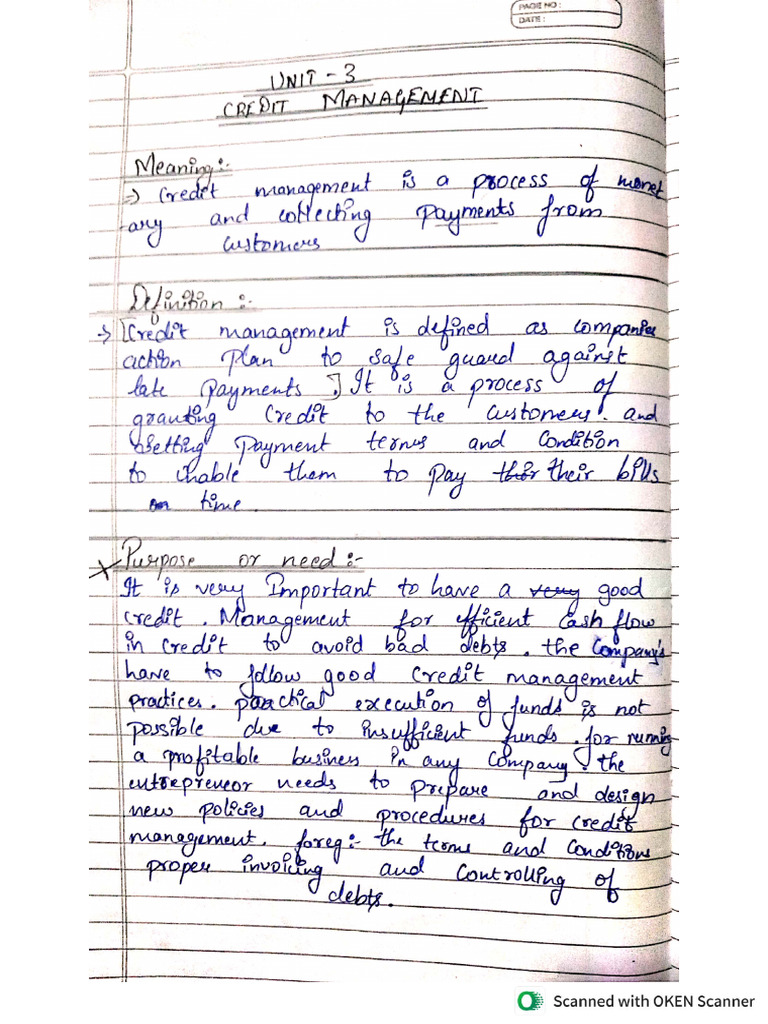 PAGE NO:
DATE:
UNIT - 3
CREDIT MANAGEMENT
Meaning:-
=> Credit management is a process of monet
-ary and collecting payments from
customers
Definition :-
=> [Credit management is defined as companies
action plan to safe guard against
late payments.] It is a process of
granting credit to the customers. and
setting payment terms and condition
to unable them to pay their bills
on time.
Purpose or need :-
It is very Important to have a very good
credit. Management for efficient Cash flow
in credit to avoid bad debts. the Company's
have to follow good credit management
practices. practical execution of funds is not
possible due to insufficient funds. for running
a profitable business in any Company. the
entrepreneur needs to prepare and design
new policies and procedures for credit
management. foreg:- the terms and Conditions
proper invoicing and controlling of
debts.
Scanned with OKEN Scanner